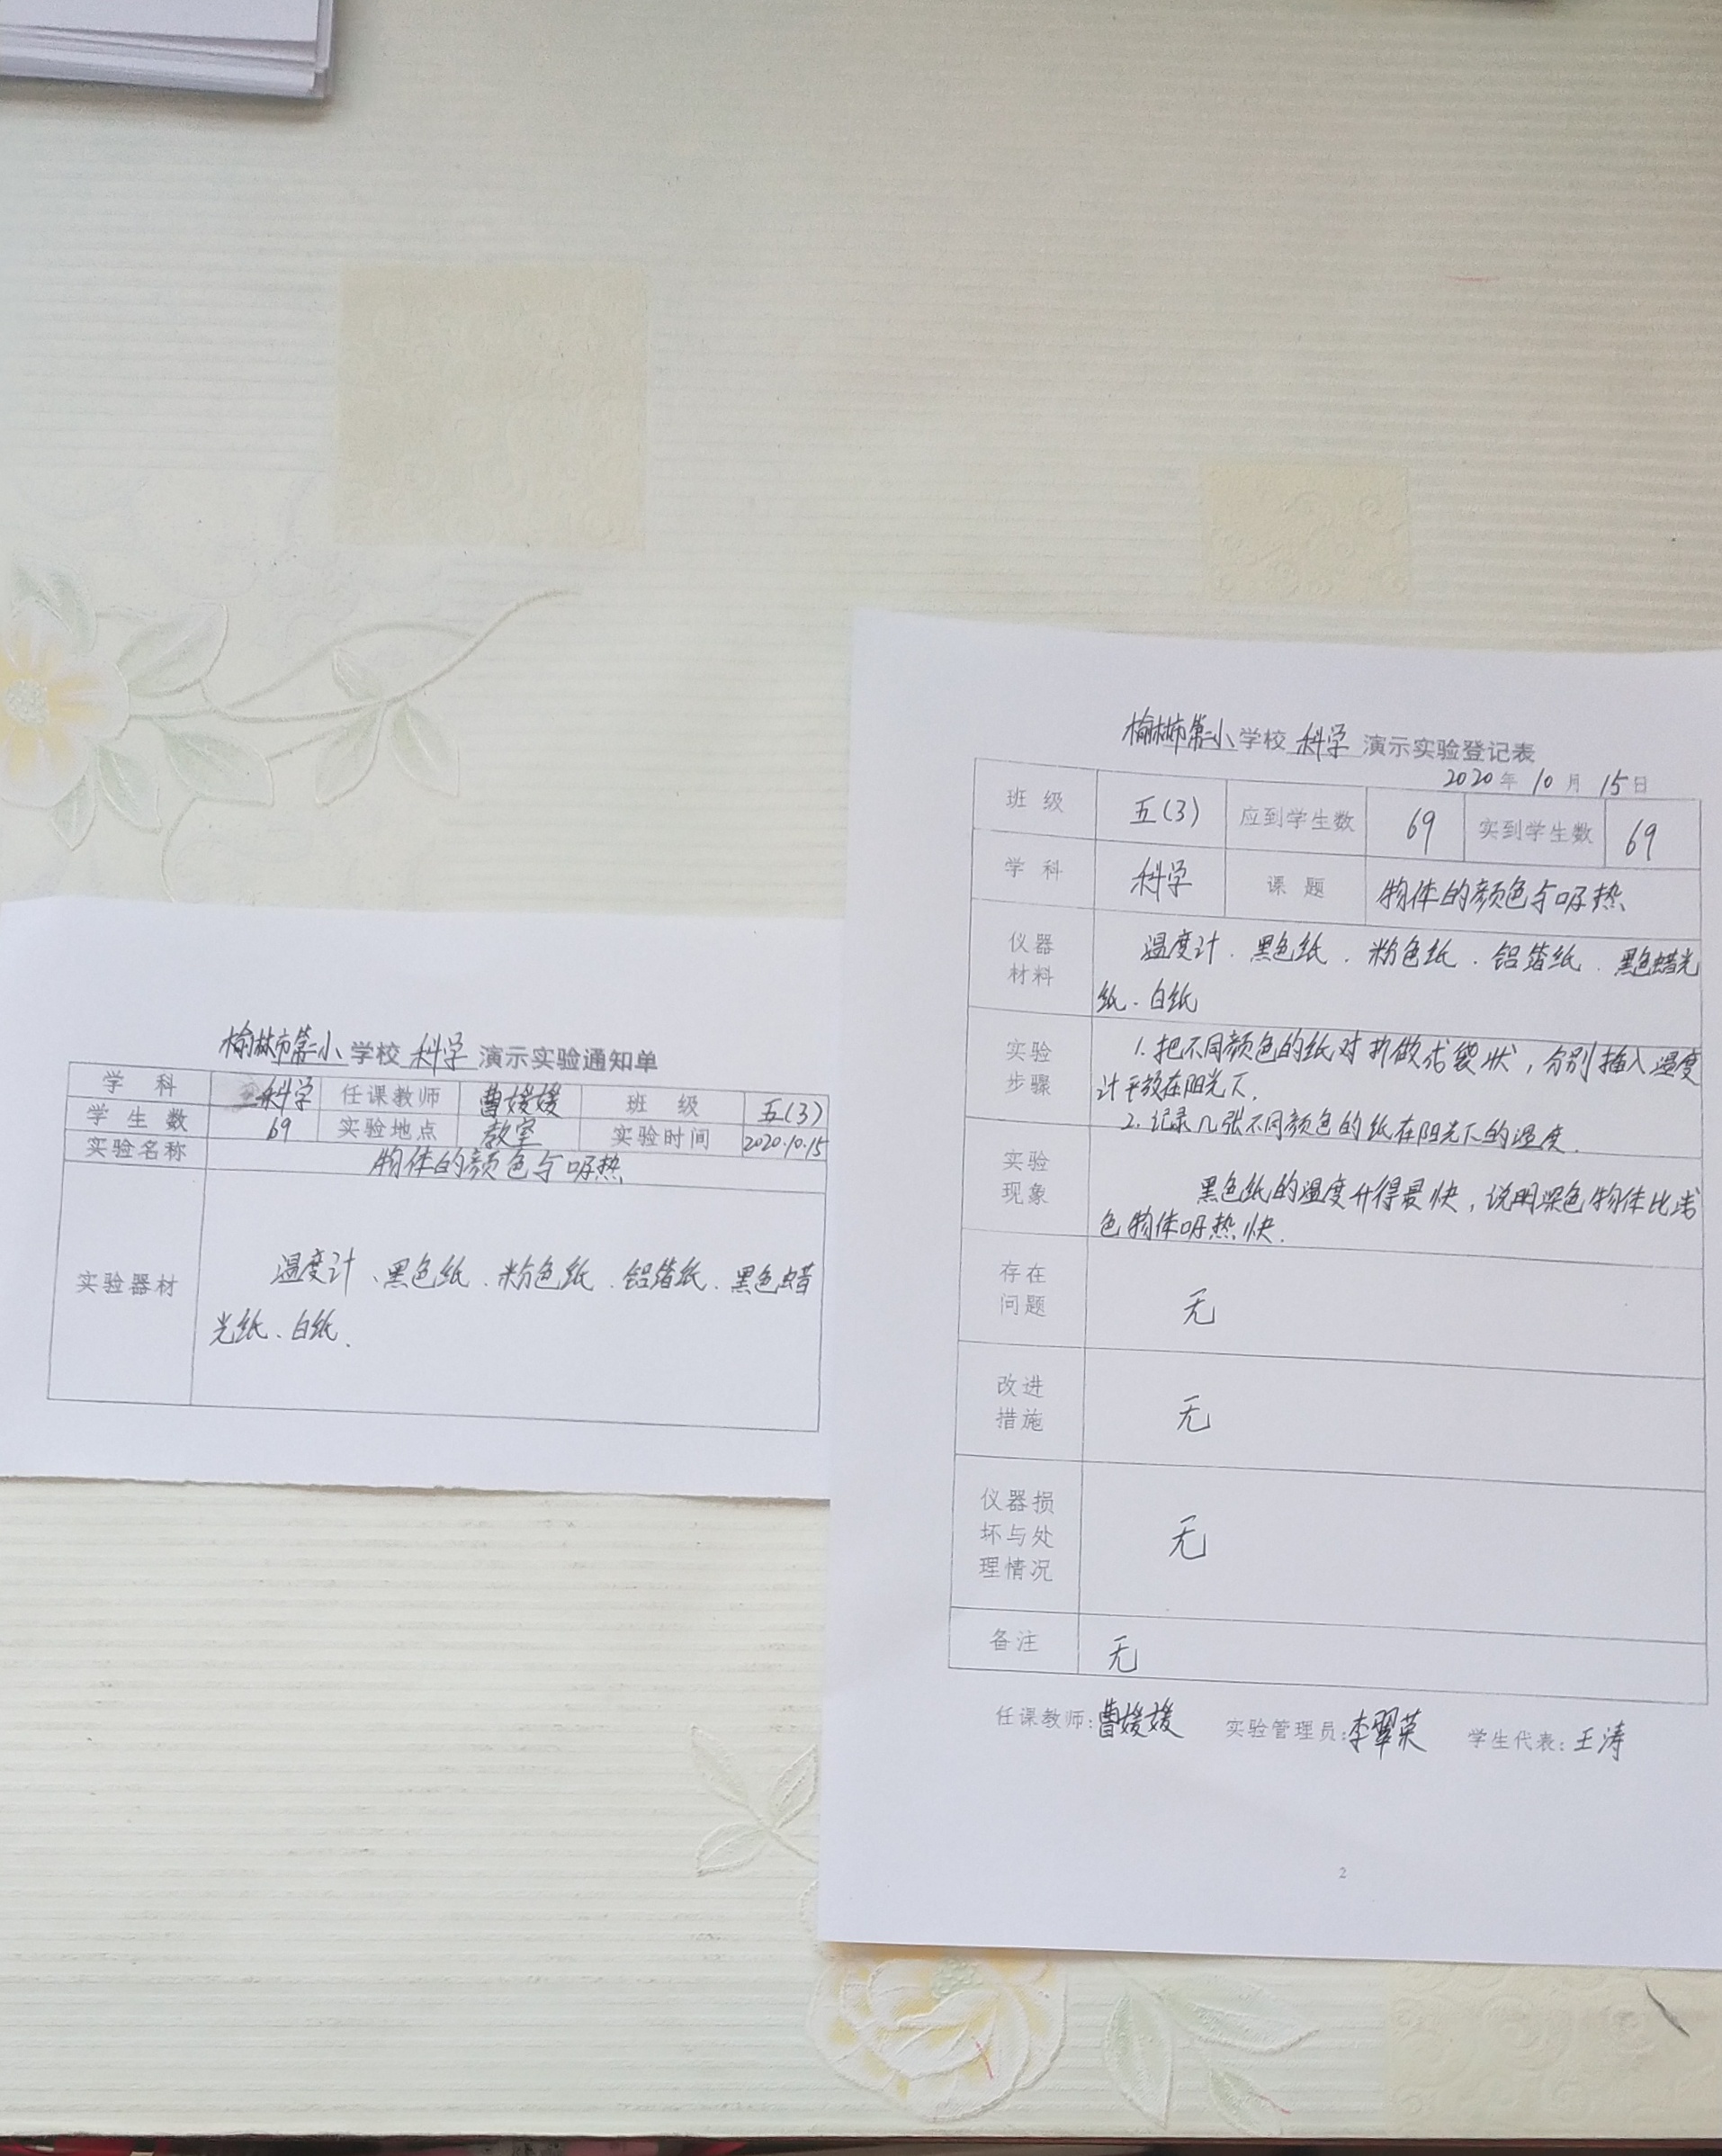 榆林市第二小学校 科学 演示实验通知单
学 科 科学 任课教师 曹媛媛 班 级 五(3)
学 生 数 69 实验地点 教室 实验时间 2020.10.15
实验名称 物体的颜色与吸热
实验器材 温度计、黑色纸、粉色纸、铝箔纸、黑色蜡
光纸、白纸、
榆林市第二小学校 科学 演示实验登记表
2020年10月15日
班 级 五(3) 应到学生数 69 实到学生数 69
学 科 科学 课 题 物体的颜色与吸热
仪器
材料
温度计、黑色纸、粉色纸、铝箔纸、黑色蜡光
纸、白纸
实验
步骤
1.把不同颜色的纸对折做成袋状,分别插入温度
计平放在阳光下.
2.记录几张不同颜色的纸在阳光下的温度.
实验
现象
黑色纸的温度升得最快,说明深色物体比浅
色物体吸热快.
存在
问题
无
改进
措施
无
仪器损
坏与处
理情况
无
备注 无
任课教师:曹媛媛 实验管理员:李翠荣 学生代表:王涛
2